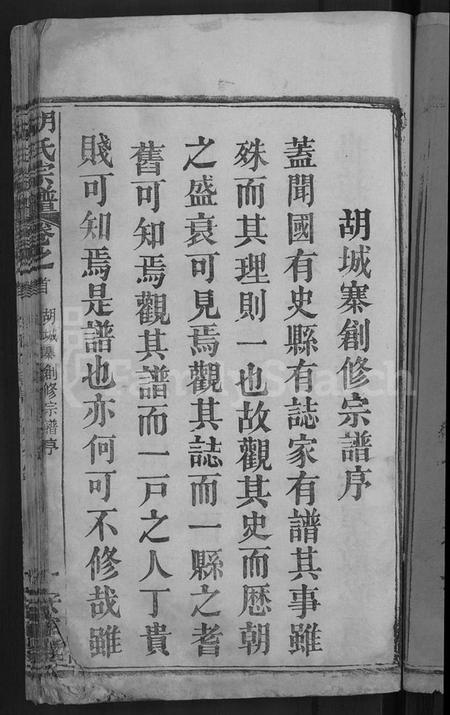 胡城寨創修宗譜序
蓋聞國有史縣有誌家有譜其事雖
殊而其理則一也故觀其史而歷朝
之盛衰可見焉觀其誌而一縣之耆
舊可知焉觀其譜而一戸之人丁貴
賤可知焉是譜也亦何可不修哉雖
胡氏宗譜 卷之首 胡城寨創修宗譜序 一
FamilySearch